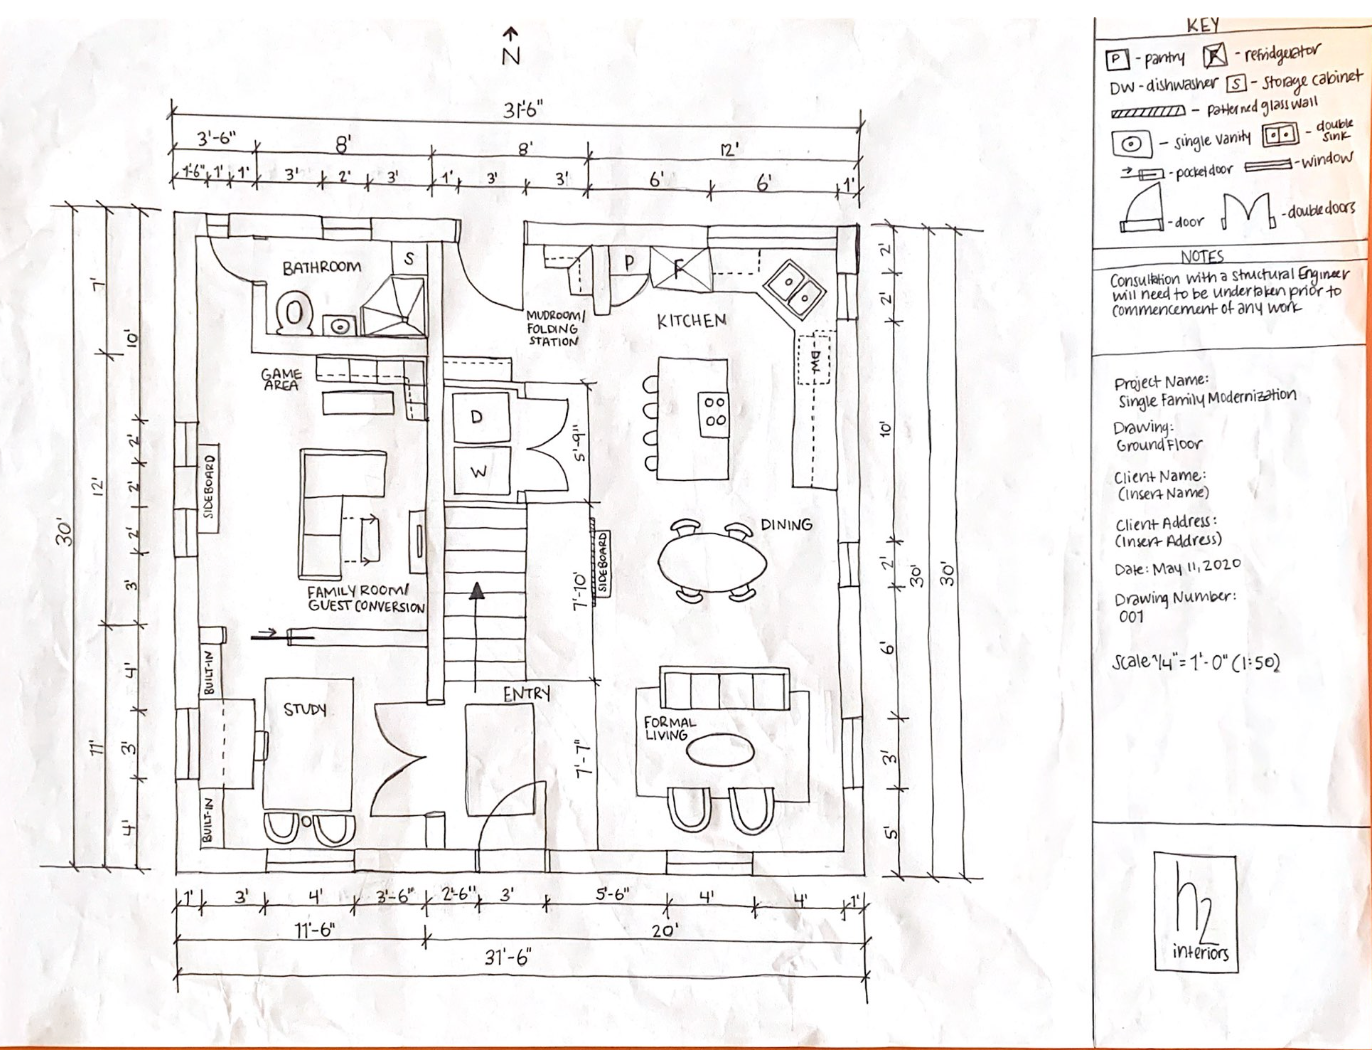 N
31'-6"
3'-6"
8'
8'
12'
1'-6"
1'
1'
3'
2'
3'
1'
3'
3'
6'
6'
1'
BATHROOM
S
P
F
MUDROOM/
FOLDING
STATION
KITCHEN
DW
GAME
AREA
D
W
5'-9"
SIDEBOARD
DINING
SIDEBOARD
7'-10"
FAMILY ROOM/
GUEST CONVERSION
BUILT-IN
STUDY
ENTRY
FORMAL
LIVING
7'-7"
BUILT-IN
30'
7'
12'
11'
10'
2'
2'
2'
3'
4'
3'
4'
2'
2'
10'
2'
6'
3'
5'
30'
30'
1'
3'
4'
3'-6"
2'-6"
3'
5'-6"
4'
4'
1'
11'-6"
20'
31'-6"
KEY
P - pantry
- refridgerator
DW - dishwasher S - storage cabinet
- patterned glass wall
- single vanity
- double
sink
- pocket door
- window
- door
- double doors
NOTES
Consultation with a structural Engineer
will need to be undertaken prior to
commencement of any work
Project Name:
Single Family Modernization
Drawing:
Ground Floor
Client Name:
(Insert Name)
Client Address:
(Insert Address)
Date: May 11, 2020
Drawing Number:
001
Scale 1/4" = 1'-0" (1:50)
h2
interiors